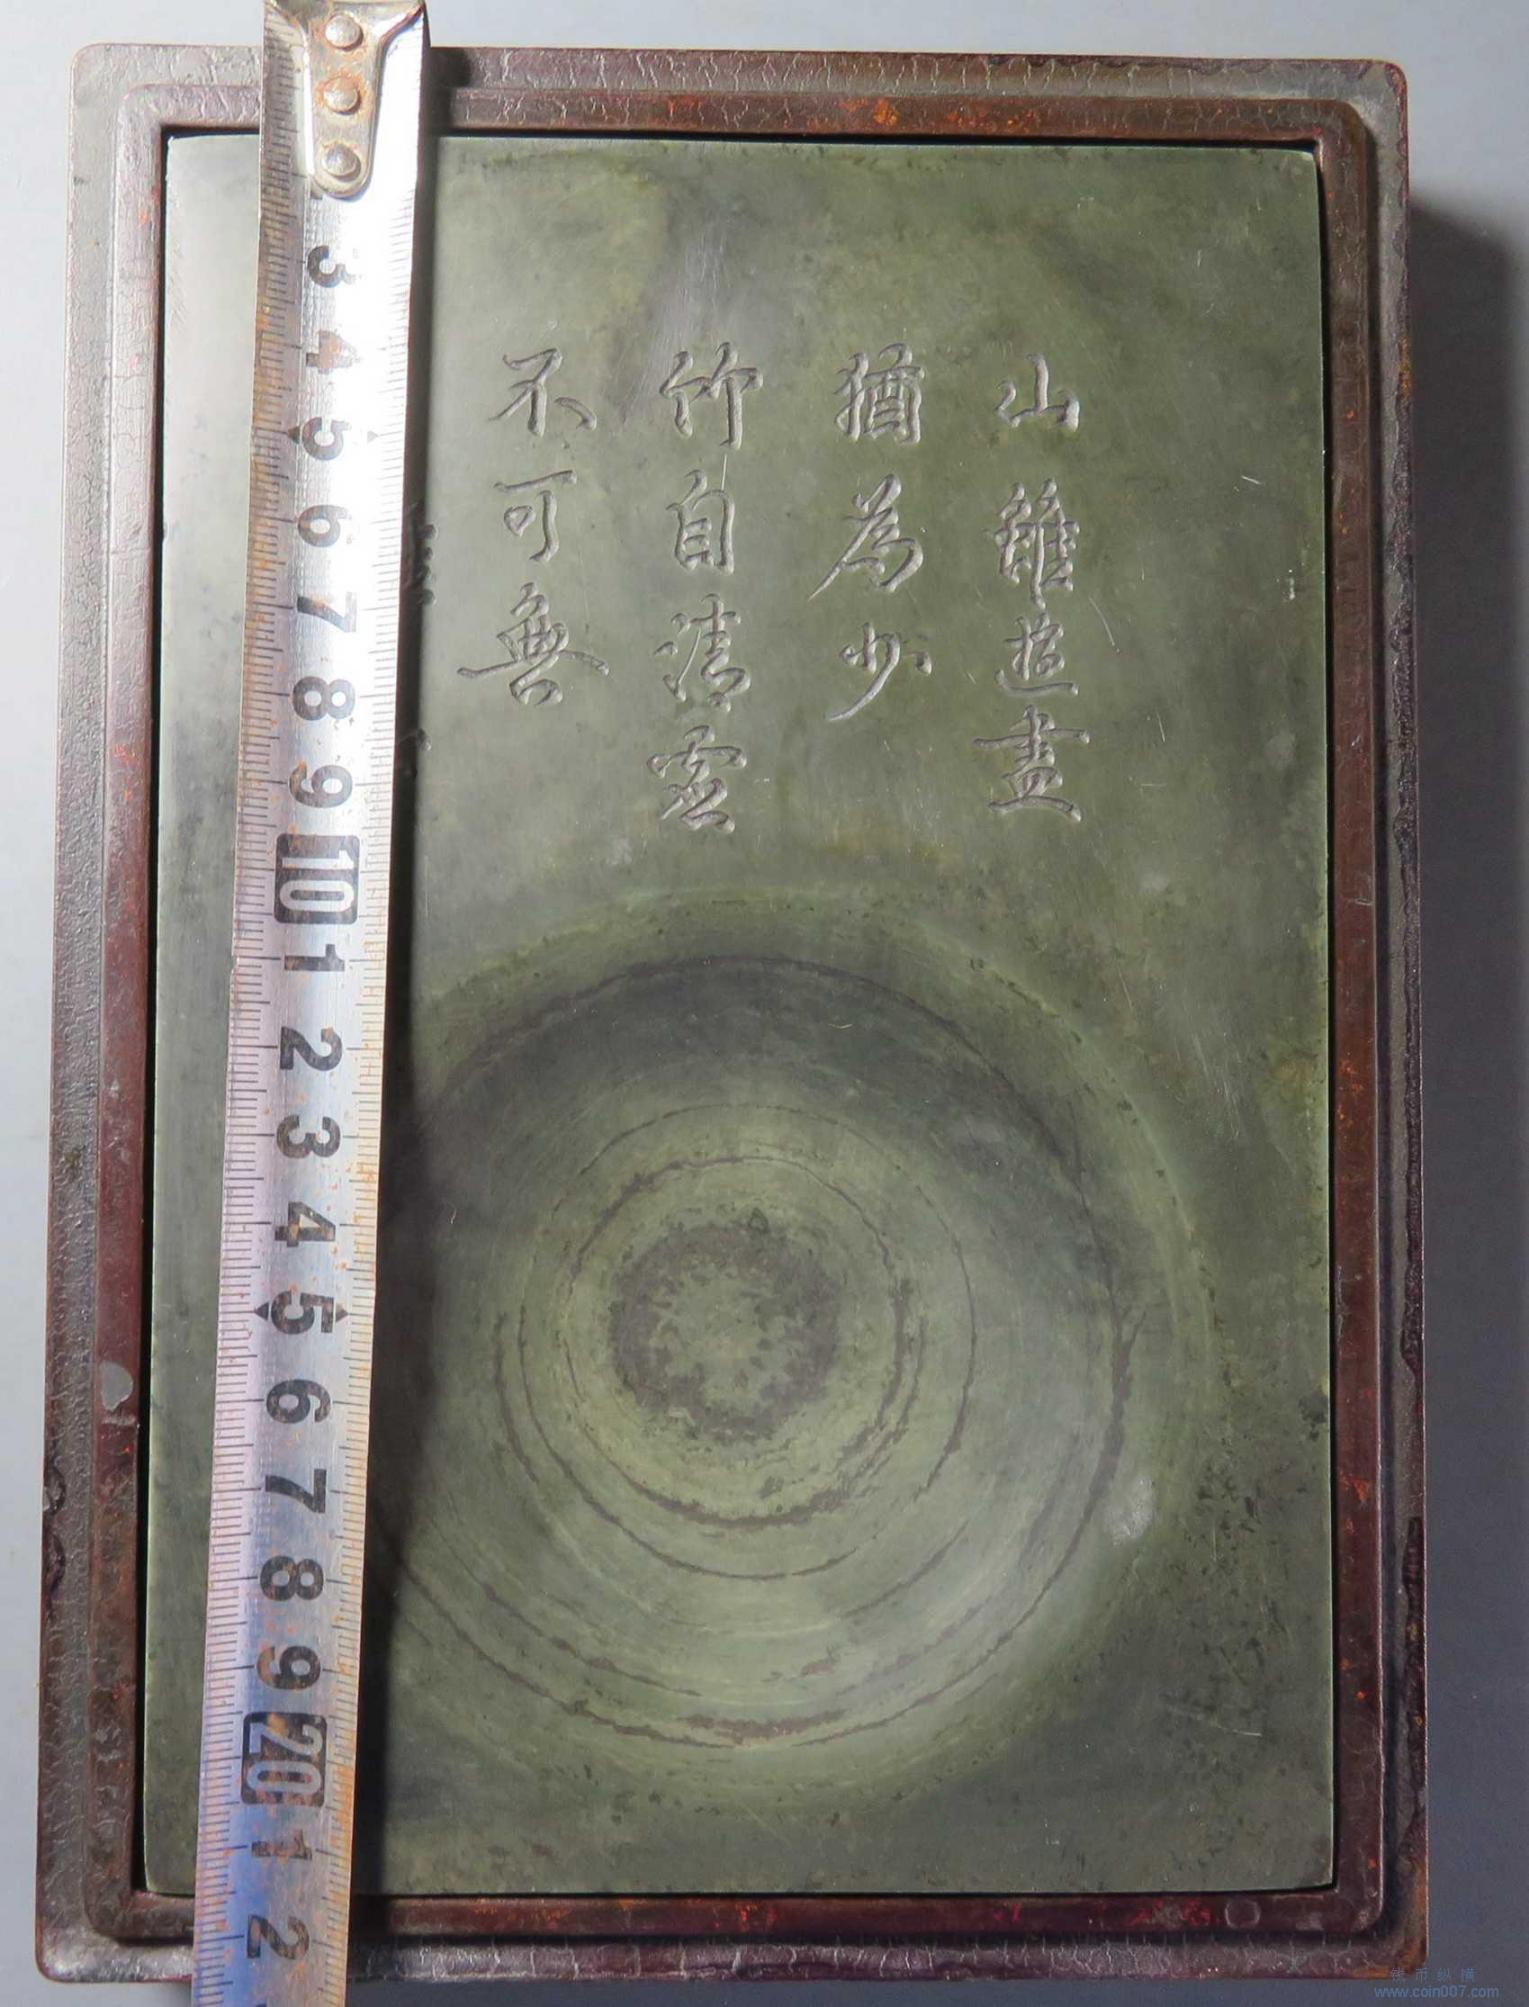 山雖盡
猶為少
竹自清虛
不可無
3 4 5 6 7 8 9 10 1 2 3 4 5 6 7 8 9 20 1 2
钱币纵横
www.coin007.com